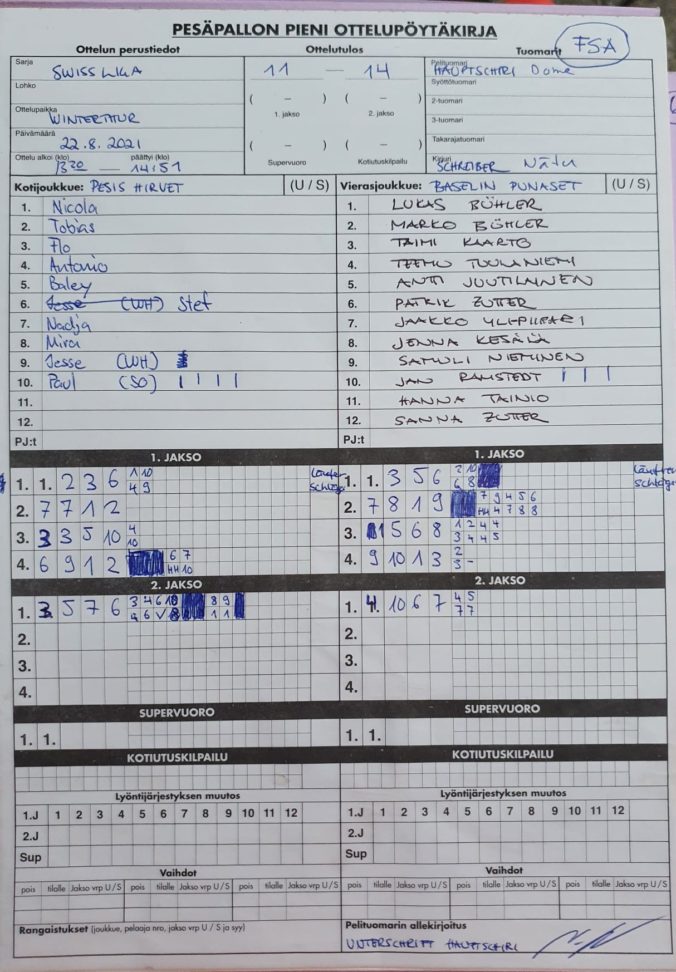 PESÄPALLON PIENI OTTELUPÖYTÄKIRJA
FSA
Ottelun perustiedot Ottelutulos Tuomarit
Sarja SWISS LIIGA
11 — 14
Pelituomari HAUPTSCHIRI Dome
Lohko
Syöttötuomari
( – ) ( – )
2-tuomari
Ottelupaikka WINTERTHUR
1. jakso 2. jakso
3-tuomari
Päivämäärä 22.8.2021
( – ) ( – )
Takarajatuomari
Ottelu alkoi (klo) 13 20 — päättyi (klo) 14:51
Supervuoro Kotiutuskilpailu
Kirjuri SCHREIBER Nätu
Kotijoukkue: PESIS HIRVET (U / S) Vierasjoukkue: BASELIN PUNASET (U / S)
1. Nicola 1. LUKAS BÜHLER
2. Tobias 2. MARKO BÜHLER
3. Flo 3. TAIMI KAARTO
4. Antonio 4. TEEMU TUULANIEMI
5. Baley 5. ANTTI JUUTILAINEN
6. Jesse (WH) Stef 6. PATRIK ZUTTER
7. Nadja 7. JAAKKO YLI-PIIPARI
8. Mira 8. JENNA KESÄLÄ
9. Jesse (WH) 9. SAMULI NIEMINEN
10. Paul (SO) | | | | 10. JAN RAMSTEDT | | |
11. 11. HANNA TAINIO
12. 12. SANNA ZUTTER
PJ:t PJ:t
1. JAKSO 1. JAKSO
1. 1. 2 3 6 1 10 1. 1. 3 5 6 2 10
4 9 6 8
2. 7 7 1 2 2. 7 8 1 9 7 9 4 5 6
HH 4 7 8 8
3. 3 3 5 10 4 3. 1 5 6 8 1 2 4 4
10 3 4 4 5
4. 6 9 1 2 6 7 4. 9 10 1 3 2
HH 10 3 -
2. JAKSO 2. JAKSO
1. 3 5 7 6 3 4 6 10 8 9 1. 4. 10 6 7 4 5
4 6 V 8 1 1 7 7
2. 2.
3. 3.
4. 4.
SUPERVUORO SUPERVUORO
1. 1. 1. 1.
KOTIUTUSKILPAILU KOTIUTUSKILPAILU
Lyöntijärjestyksen muutos Lyöntijärjestyksen muutos
1.J 1 2 3 4 5 6 7 8 9 10 11 12 1.J 1 2 3 4 5 6 7 8 9 10 11 12
2.J 2.J
Sup Sup
Vaihdot Vaihdot
pois tilalle Jakso vrp U / S pois tilalle Jakso vrp U / S pois tilalle Jakso vrp U / S pois tilalle Jakso vrp U / S pois tilalle Jakso vrp U / S pois tilalle Jakso vrp U / S
Rangaistukset (joukkue, pelaaja nro, jakso vrp U / S ja syy) Pelituomarin allekirjoitus
UNTERSCHRIFT HAUPTSCHIRI